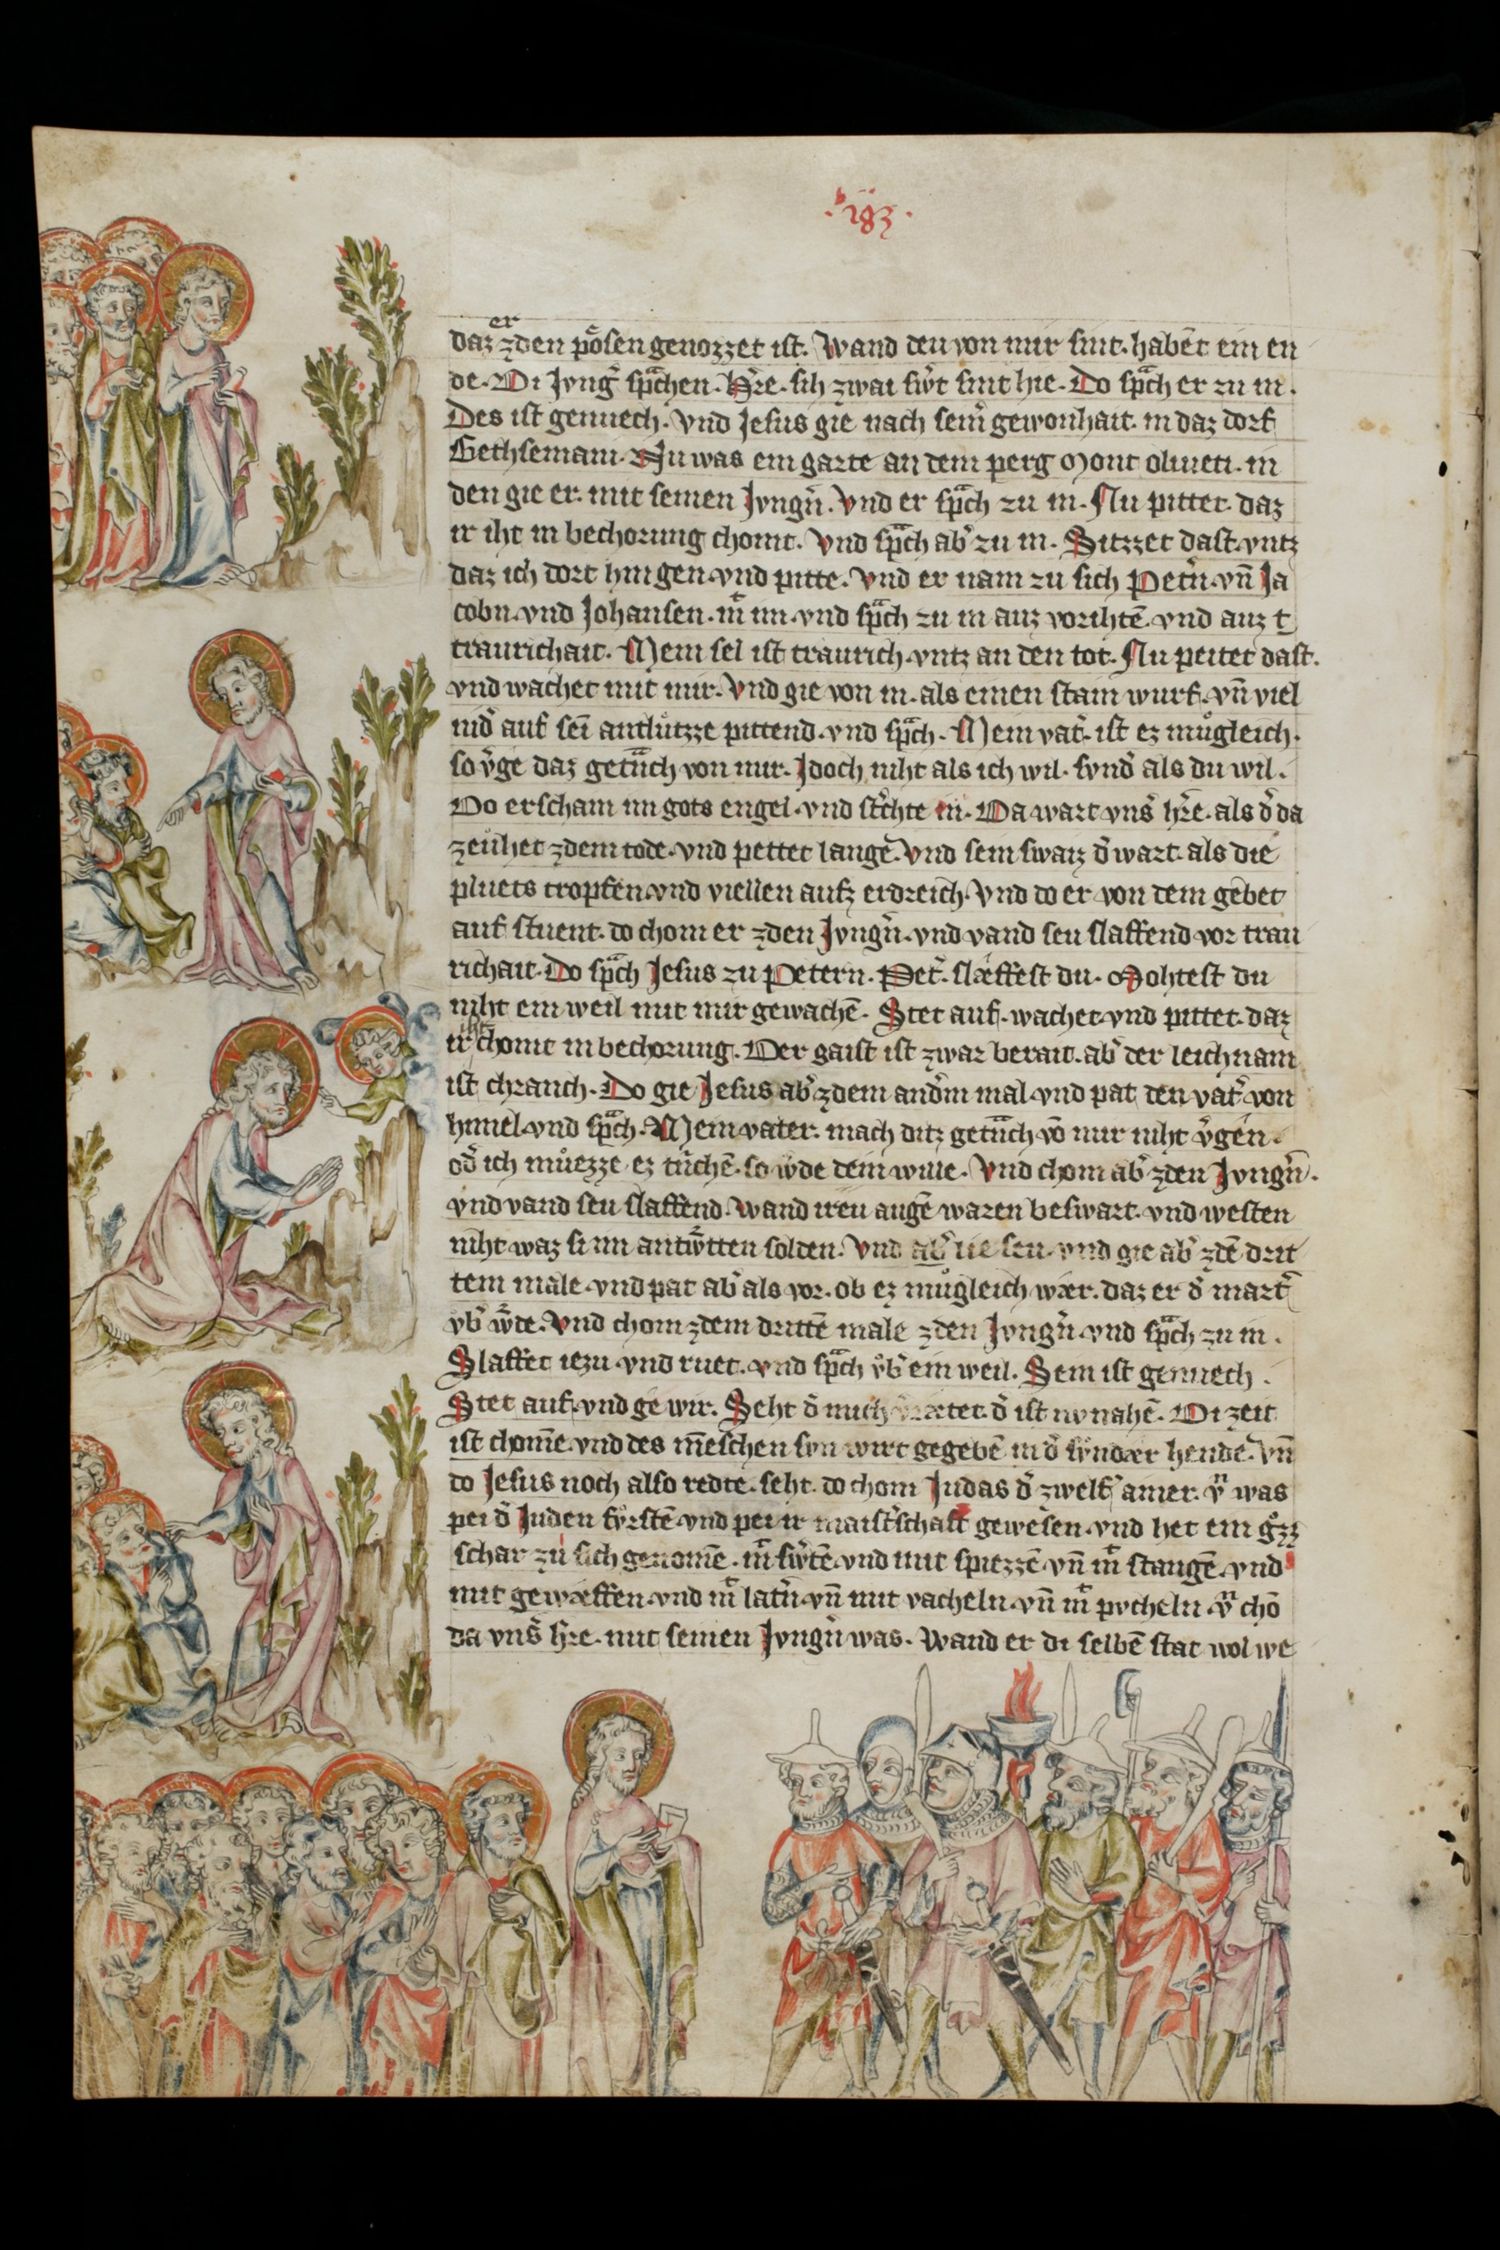 · 183 ·
daz er zden pösen genozzet ist. Wand deu von mir sint. habent ein en
de. Di Jvng̉ sp̾chen. Hr̾e. sih zwai sw̾t sint hie. Do sp̾ch er zu in.
Des ist genuech. Vnd Jesus gie nach sein̾ gewonhait. in daz dorf
Gethsemani. Nu was ein garte an dem perg Mont oliueti. in
den gie er. mit seinen Jvngn̾. Vnd er sp̾ch zu in. Nu pittet. daz
ir iht in bechorung chomt. Vnd sp̾ch ab̾ zu in. Sitzzet dast. vntz
daz ich dort hin gen. vnd pitte. Vnd er nam zu sich Petn̾. vn̄ Ja
cobn. vnd Johansen. mͭ im. vnd sp̾ch zu in auz vorihtē. vnd auz t
traurichait. Mein sel ist traurich. vntz an den tot. Nu peitet dast.
vnd wachet mit mir. Vnd gie von in. als einen stain wurf. vn̄ viel
nid̾ auf sei̅ antluͤtzze pittend. vnd sp̾ch. Mein vat̾. ist ez muͤgleich.
so v̾ge daz getra̅ch von mir. Jdoch niht als ich wil. svnd̾ als du wil.
Do erschain im gots engel. vnd st̾chte in. Da wart vns̾ hr̾e. als d̾ da
zeuͤhet zdem tode. vnd pettet lange. Vnd sein swaiz d̾ wart. als die
pluets tropfen. vnd viellen aufz erdreich. Vnd do er von dem gebet
auf stuent. do chom er zden Jvngn̾. vnd vand seu slaffend vor trau
richait. Do sp̾ch Jesus zu Petern. Pet̾. slæffest du. Mohtest du
niht ein weil mit mir gewachē. Stet auf. wachet. vnd pittet. daz
ir iht chomt in bechorung. Der gaist ist zwar berait. ab̾ der leichnam
ist chranch. Do gie Jesus ab̾ zdem and̾m mal. vnd pat den vat̾ von
himel. vnd sp̾ch. Mein vater. mach ditz getra̅ch vō mir niht v̾gen.
od̾ ich muͤezze ez tri̅chē. so w̾de dein wille. Vnd chom ab̾ zden Jvngn̾.
vnd vand seu slaffend. Wand ireu augē waren beswart. vnd westen
niht waz si im antw̾tten solden. Vnd ab̾ lie seu. vnd gie ab̾ zdē drit
tem male. vnd pat ab̾ als vor. ob ez muͤgleich wær. daz er d̾ mart̾
vb̾ w̾de. Vnd chom zdem drittē male zden Jvngn̾. vnd sp̾ch zu in.
Slaffet iezu. vnd ruet. vnd sp̾ch vͤb̾ ein weil. Sein ist genuech.
Stet auf. vnd ge wir. Seht d̾ mich v̾rætet. d̾ ist nv nahē. Di zeit
ist chom̄e. vnd des m̄eschen svn wirt gegebē in d̾ svͤndær hende. Vn̄
do Jesus noch also redte. seht. do chom Judas d̾ zwelf̾ ainer. v̾ was
pei d̾ Juden fvͤrstē. vnd pei ir maist̾schaft gewesen. vnd het ein gͦzz
schar zu sich genomē. mͭ sw̾tē. vnd mit spiezzē. vn̄ mͭ stangē. vnd
mit gewæffen. vnd mͭ latn̾. vn̄ mit vacheln. vn̄ mͭ pvcheln. v̾ chō
da vns̾ hr̾e. mit seinen Jvngn̾ was. Wand er di selbē stat wol we